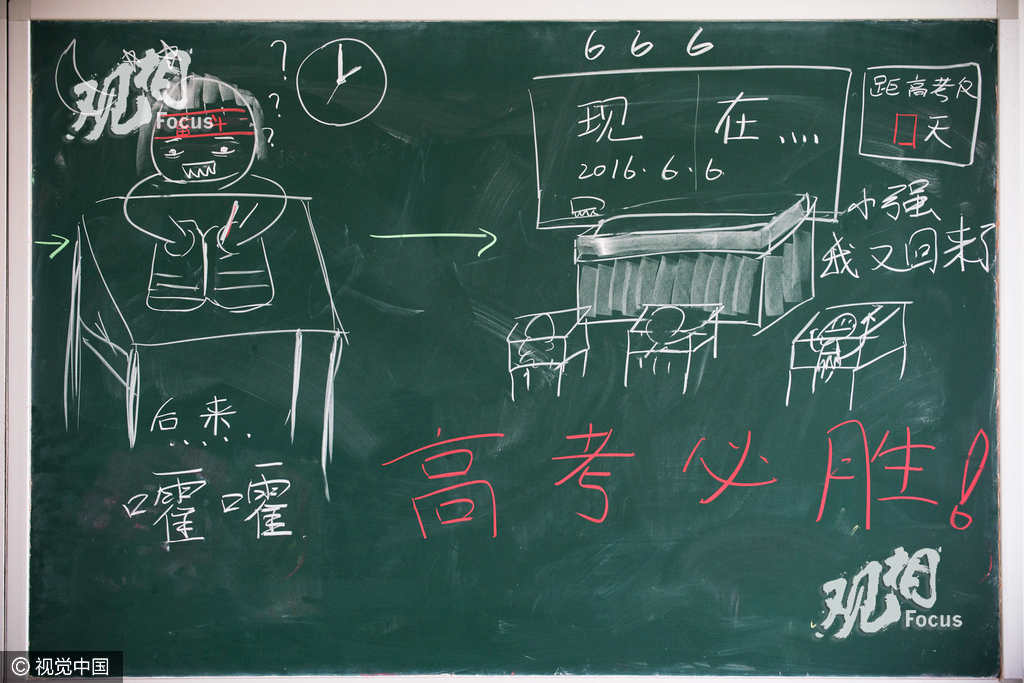 观相
Focus
奋斗
? ? ?
6 6 6
现在....
2016.6.6.
距高考仅
口天
小强
我又回来了
后来
.....
嚯嚯
高考必胜!
观相
Focus
© 视觉中国